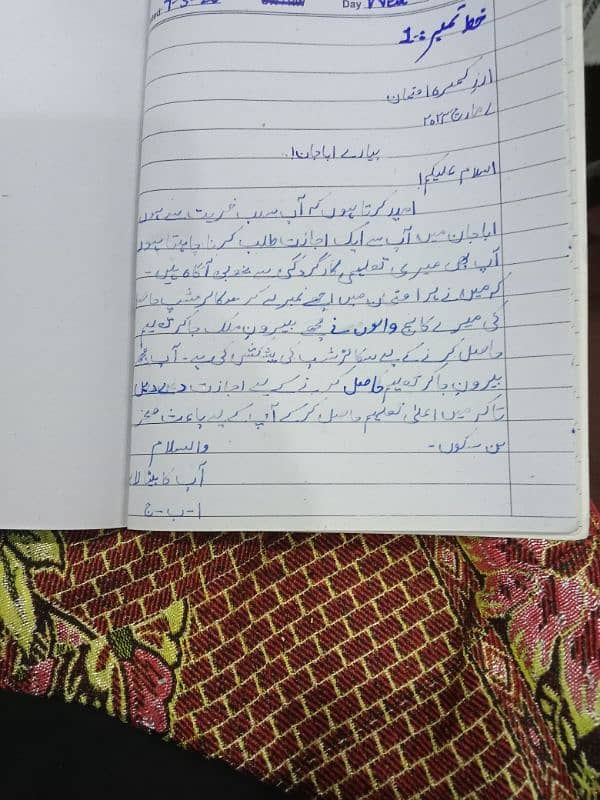 Day Wed
خط نمبر:-1
از کمرہ امتحان
7 مارچ 2023
پیارے اباجان!
اسلام علیکم!
امید کرتا ہوں کہ آپ سب خیریت سے ہوں
اباجان میں آپ سے ایک اجازت طلب کرنا چاہتا ہوں
آپ بھی میری تعلیمی کارکردگی سے بخوبی آگاہ ہیں۔
کہ میں نے ہر امتحان میں اچھے نمبر لے کر سکالرشپ حاصل
کی میرے کالج والوں نے مجھے بیرون ملک جا کر تعلیم
حاصل کرنے کے لیے سکالرشپ کی پیشکش کی ہے۔ آپ مجھے
بیرون جا کر تعلیم حاصل کرنے کے لیے اجازت دے دیں
تاکہ میں اعلیٰ تعلیم حاصل کرکے آپ کے لیے باعث فخر
بن سکوں۔
والسلام
آپ کا بیٹا
ا-ب-ج